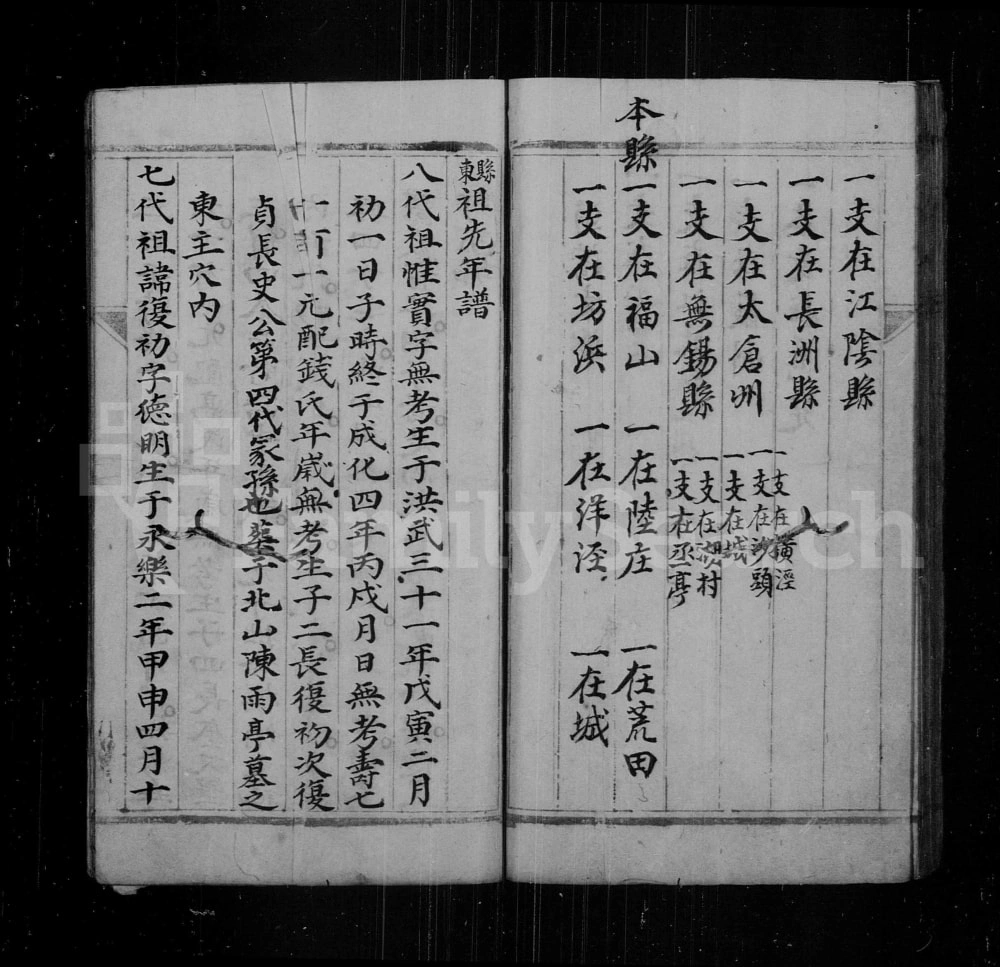 一支在江陰縣
一支在長洲縣
一支在太倉州
一支在無錫縣
一支在橫涇
一支在沙頭
一支在城
一支在湖村
一支在丞亭
本縣
一支在福山 一在陸庄 一在荒田
一支在坊浜 一在洋涇 一在城
縣東祖先年譜
八代祖惟實字無考生于洪武三十一年戊寅二月
初一日子時終于成化四年丙戌月日無考壽七
十有一元配錢氏年嵗無考生子二長復初次復
貞長史公第四代冢孫也塟于北山陳雨亭墓之
東主穴內
七代祖諱復初字德明生于永樂二年甲申四月十
FamilySearch